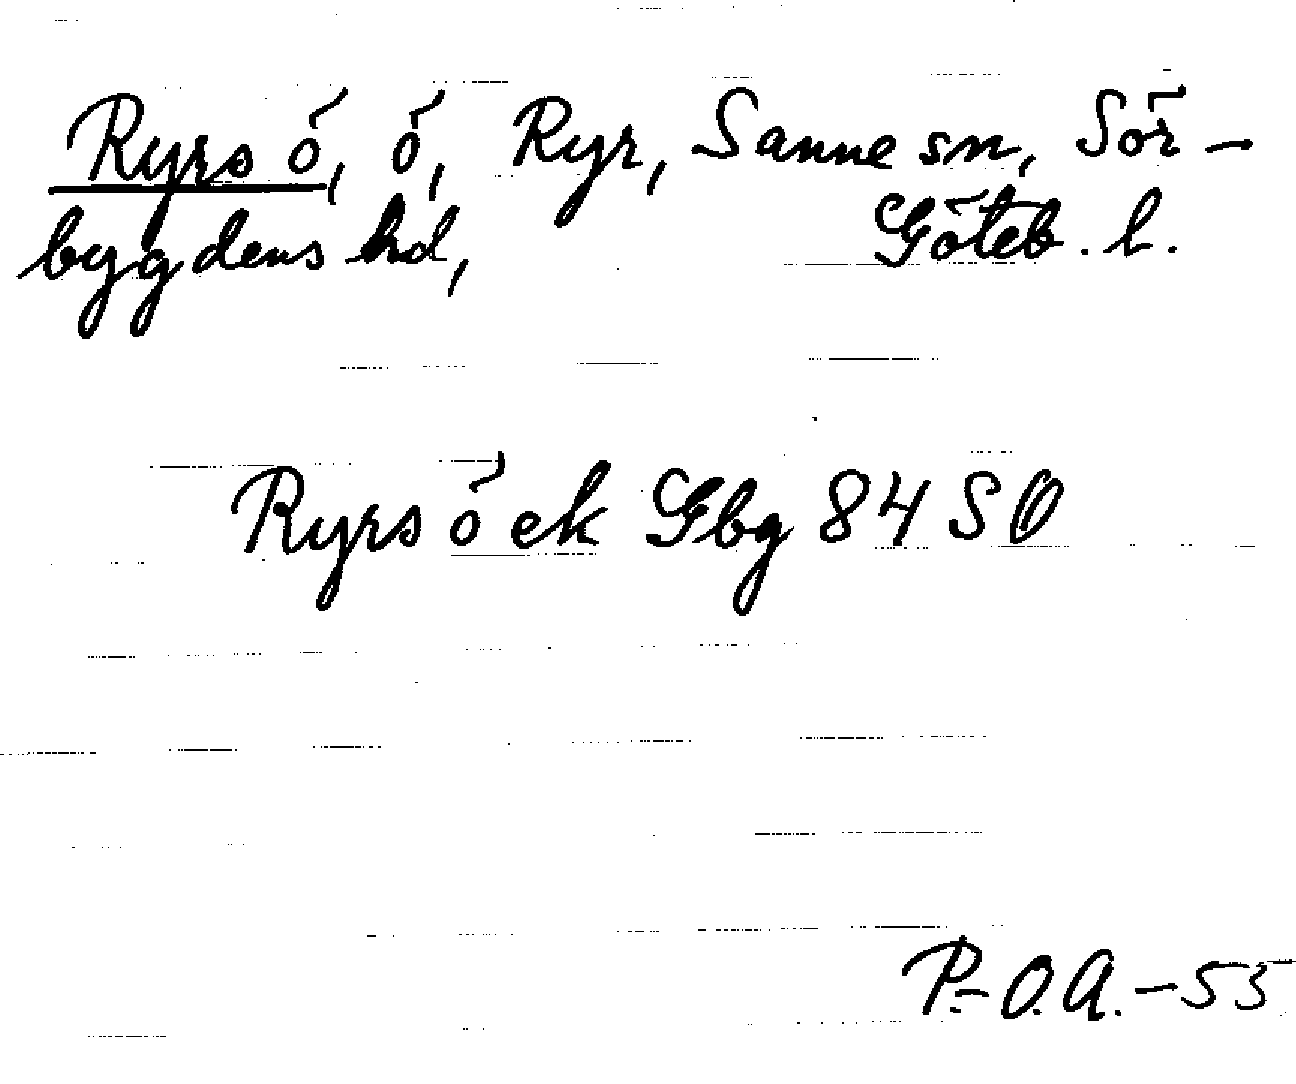 Ryrs ö, ö, Ryr, Sanne sn, Sör-
bygdens hd, Göteb. l.
Ryrs ö ek Gbg 84 SO
P.-O.A.-55